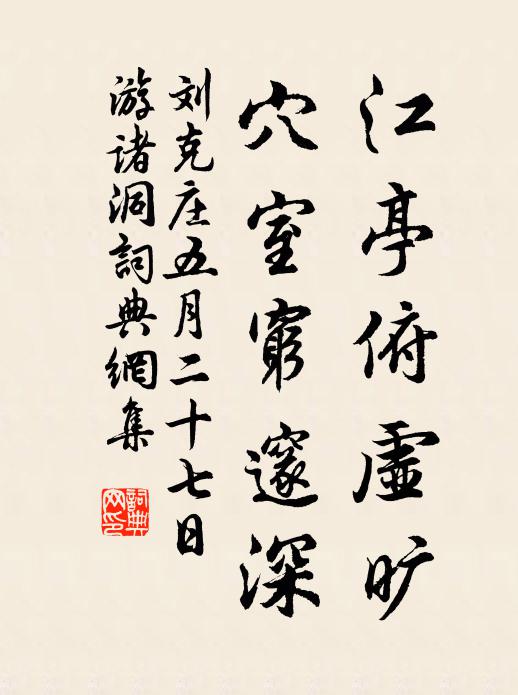 江亭俯虚旷
穴室窮邃深
刘克庄五月二十七日
游诸洞詞典網集
詞典网印